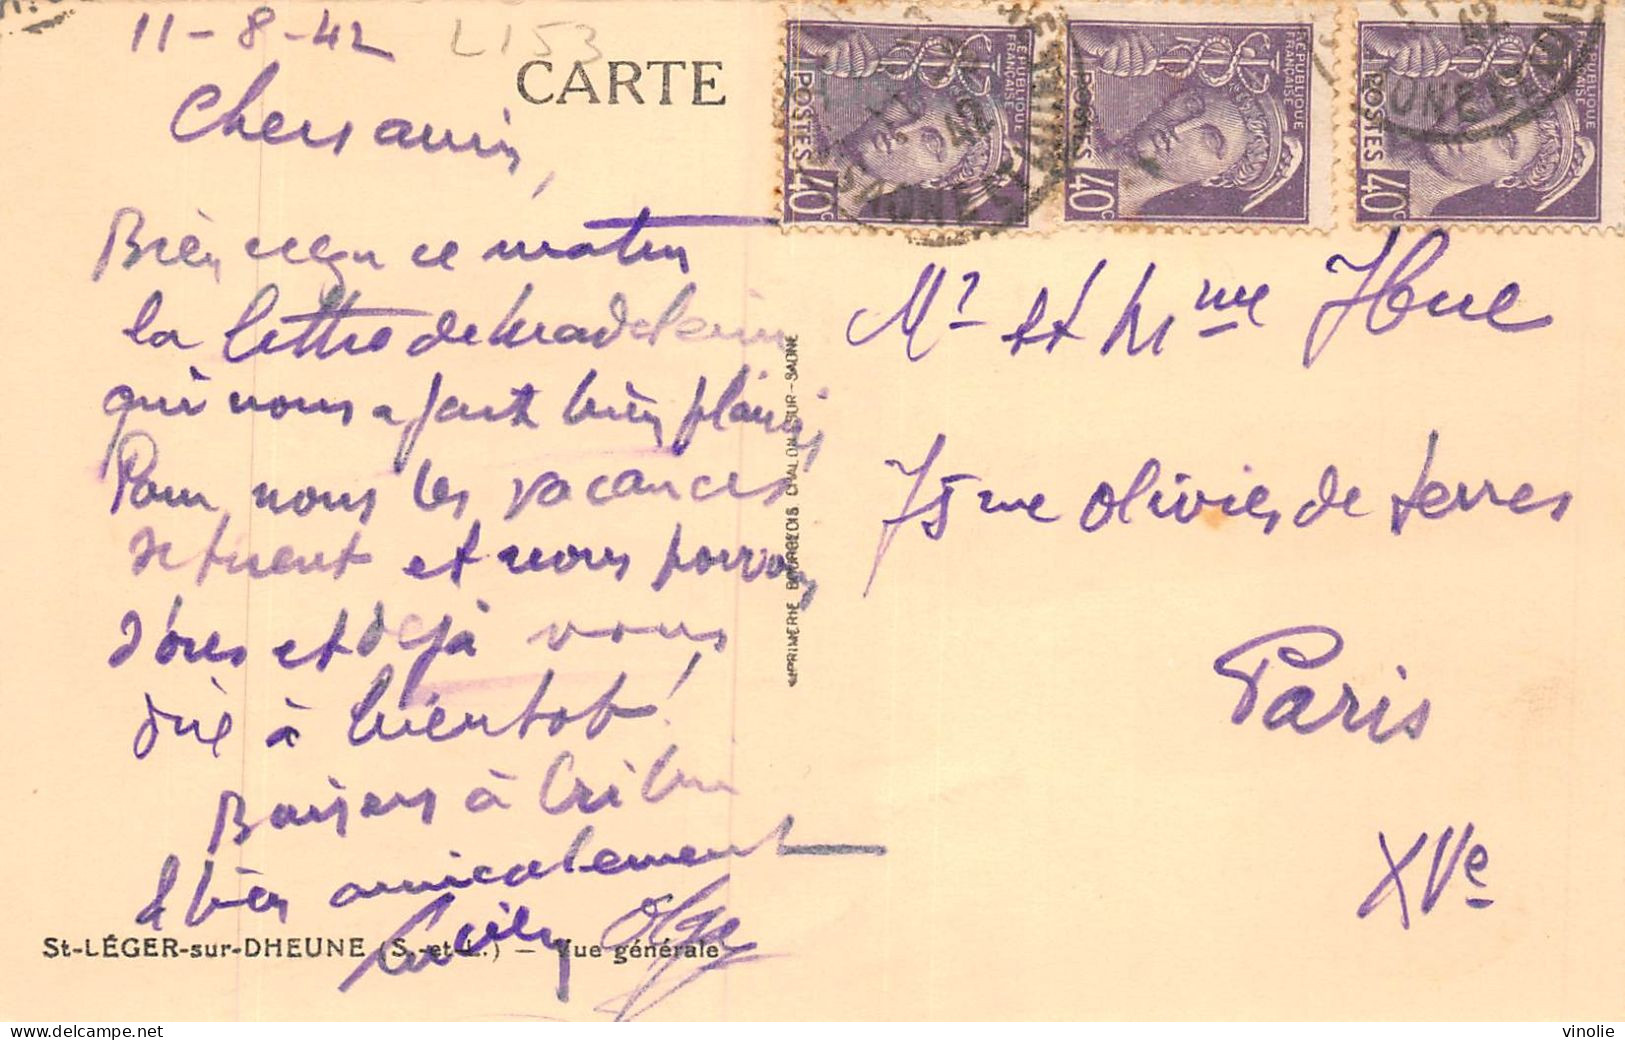 11-8-42
L153
CARTE
Chers amis,
Bien reçu ce matin
la lettre de Madeleine
qui nous a fait bien plaisir
Pour nous les vacances
se tirent et nous pouvons
d'ores et déjà vous
dire à bientôt!
Baisers à
& bien amicalement
Olga
St-LÉGER-sur-DHEUNE (S.-et-L.) — Vue générale
IMPRIMERIE BOURGEOIS CHALON-SUR-SAONE
RÉPUBLIQUE FRANÇAISE
POSTES 40c
RÉPUBLIQUE FRANÇAISE
POSTES 40c
RÉPUBLIQUE FRANÇAISE
POSTES 40c
42
42
Mr et Mme Hue
75 rue Olivier de Serres
Paris
XVe
delcampe.net
vinolie